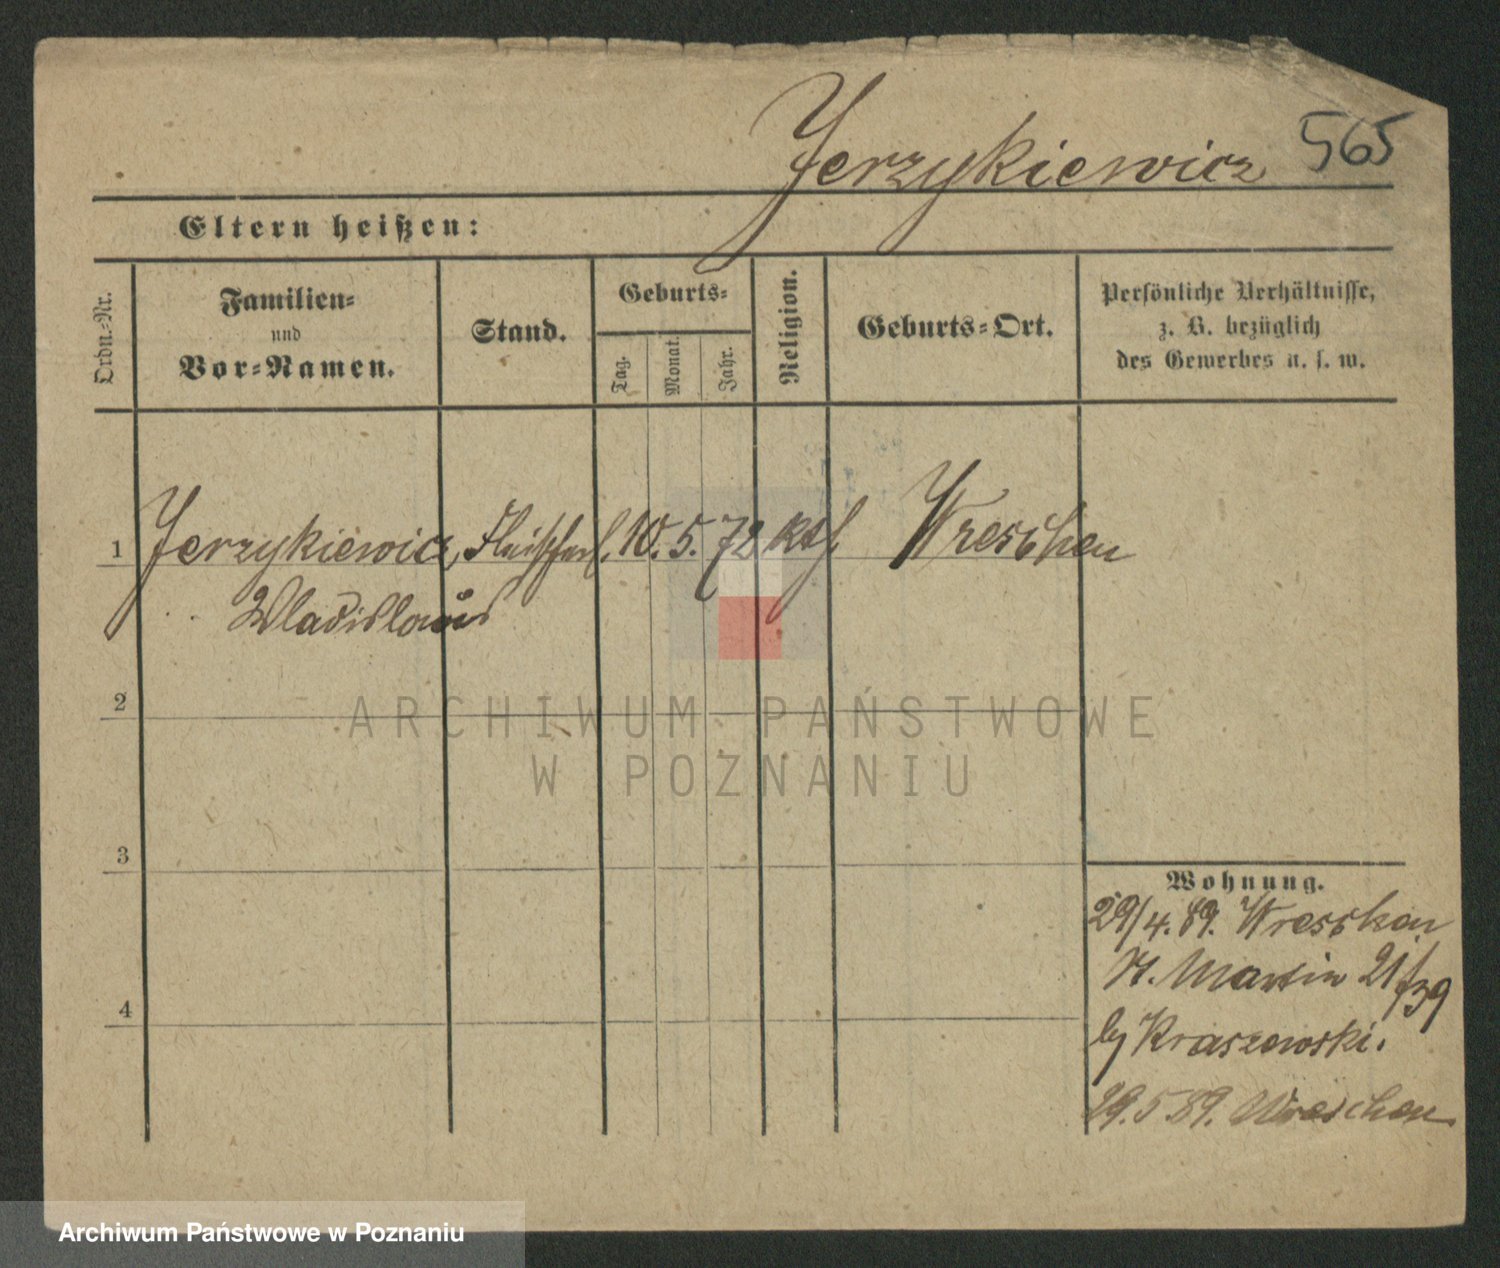 Jerzykiewicz 565
Eltern heißen:
Ordn.-Nr.
Familien-
und
Vor-Namen.
Stand.
Geburts-
Tag.
Monat.
Jahr.
Religion.
Geburts-Ort.
Persönliche Verhältnisse,
z. B. bezüglich
des Gewerbes u. s. w.
1 Jerzykiewicz, 10. 5. 72 kth. Wreschen
Wladislaus
2
ARCHIWUM PAŃSTWOWE
W POZNANIU
3
Wohnung.
29/4. 89. Wreschen
St. Martin 21
4
Kraszewski.
29. 5 89. Wreschen
Archiwum Państwowe w Poznaniu